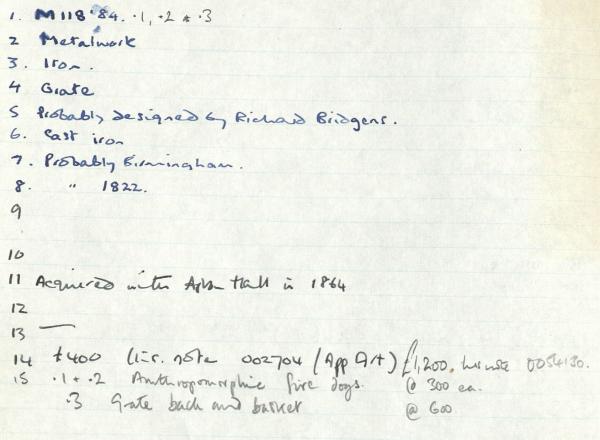 1. M118'84. .1, .2 + .3
2 Metalwork
3. Iron.
4 Grate
5 Probably designed by Richard Bridgens.
6. Cast iron
7. Probably Birmingham.
8. " 1822.
9
10
11 Acquired with Aston Hall in 1864
12
13 —
14 £400 (ins. note 002704 (App Art) £1,200. 0054130.
15 .1 + .2 Anthropomorphic fire dogs. @ 300 ea.
.3 Grate back and basket @ 600